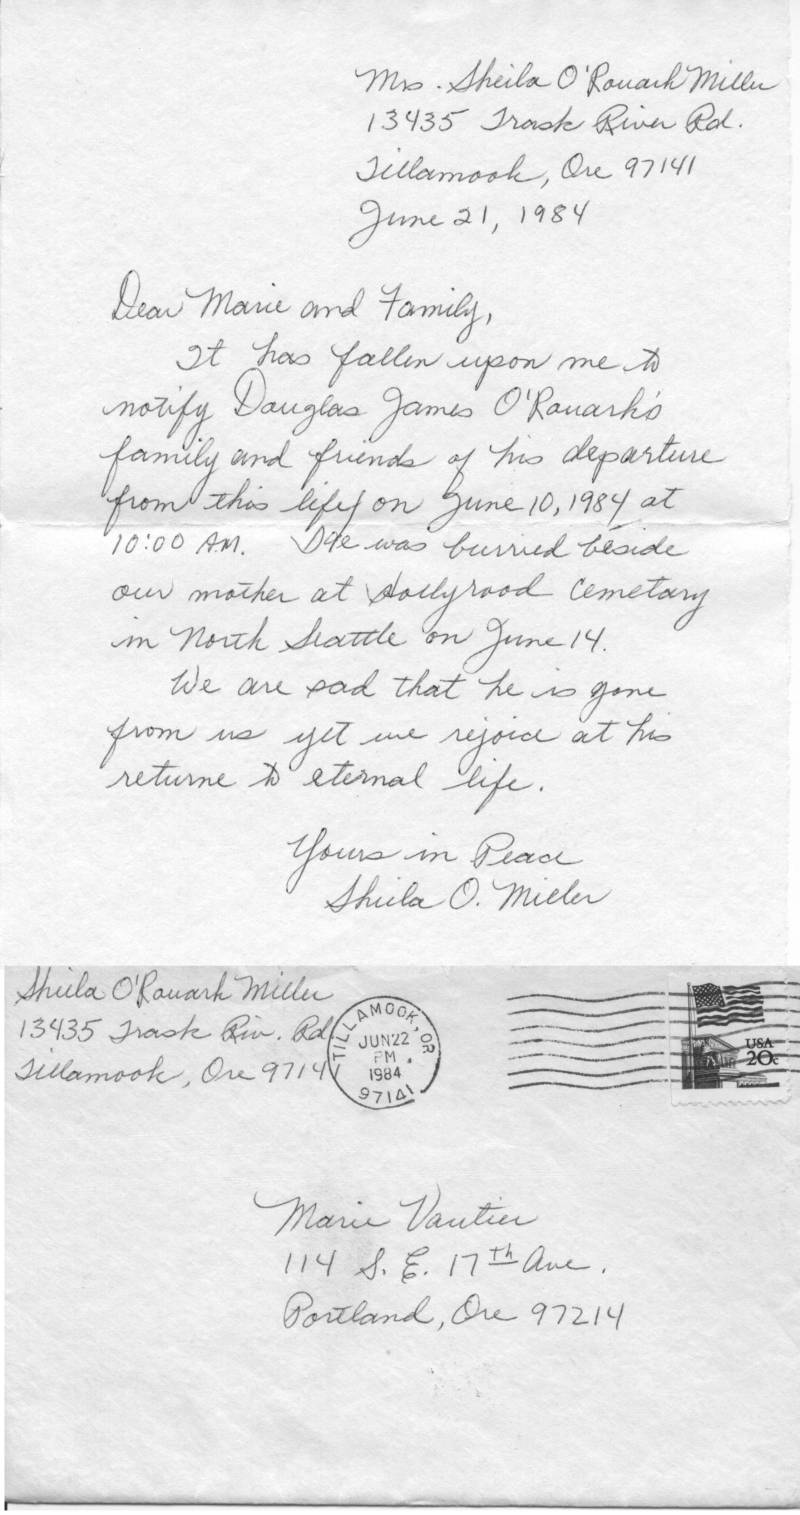 Mrs. Sheila O'Rouark Miller
13435 Trask River Rd.
Tillamook, Ore 97141
June 21, 1984
Dear Marie and Family,
It has fallen upon me to
notify Douglas James O'Rouark's
family and friends of his departure
from this life on June 10, 1984 at
10:00 AM. He was burried beside
our mother at Hollyrood Cemetary
in North Seattle on June 14.
We are sad that he is gone
from us yet we rejoice at his
returne to eternal life.
Yours in Peace
Sheila O. Miller
Sheila O'Rouark Miller
13435 Trask Riv. Rd
Tillamook, Ore 9714
TILLAMOOK, OR
JUN 22
PM
1984
97141
USA
20c
Marie Vautier
114 S. E. 17th Ave.
Portland, Ore 97214